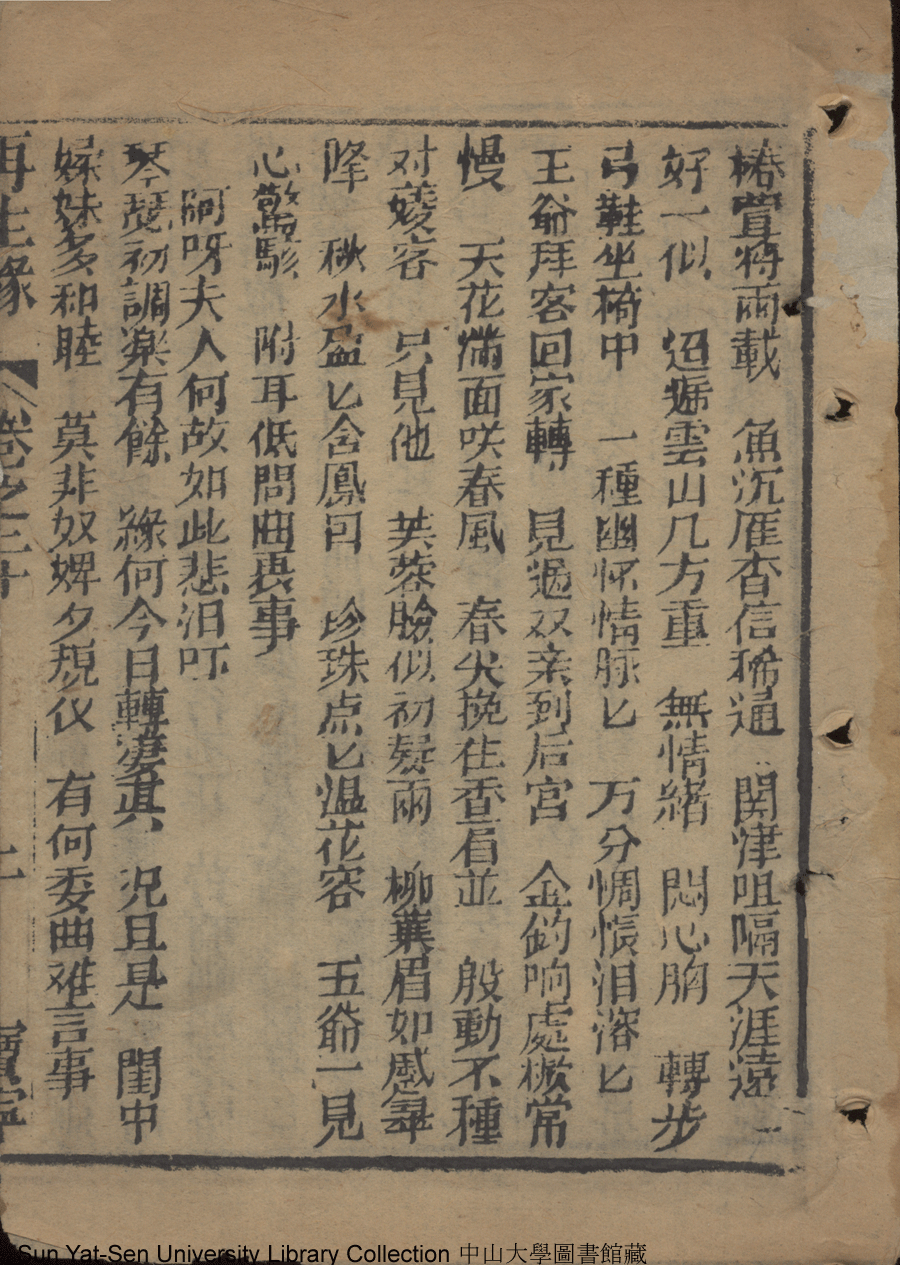 椿萱将兩載　魚沉雁杳信稀通　関津咀嗝天涯遠
好一似　迢遞雲山几方重　無情緒　悶心胸　轉步
弓鞋坐椅中　一種幽怀情脉匕　万分惆悵泪溶匕
王爺拜客回家轉　見過双亲到后宫　金鈎响處
慢　天花滿面咲春風　春尖挽住香肩並　殷動不種
对菱容　只見他　芙蓉臉似初疑兩　柳葉眉如慼
降　秋水盈匕含鳳目　珍珠点匕温花容　王爺一見
心驚駭　附耳低問曲衷事
阿呀夫人何故如此悲泪吓
琴瑟初調楽有餘　緣何今日轉凄其　况且是　閨中
嫜妹多和睦　莫非奴婢夕規仪　有何委曲难言事
再生緣　卷之三十　寶寧
Sun Yat-Sen University Library Collection 中山大學圖書館藏